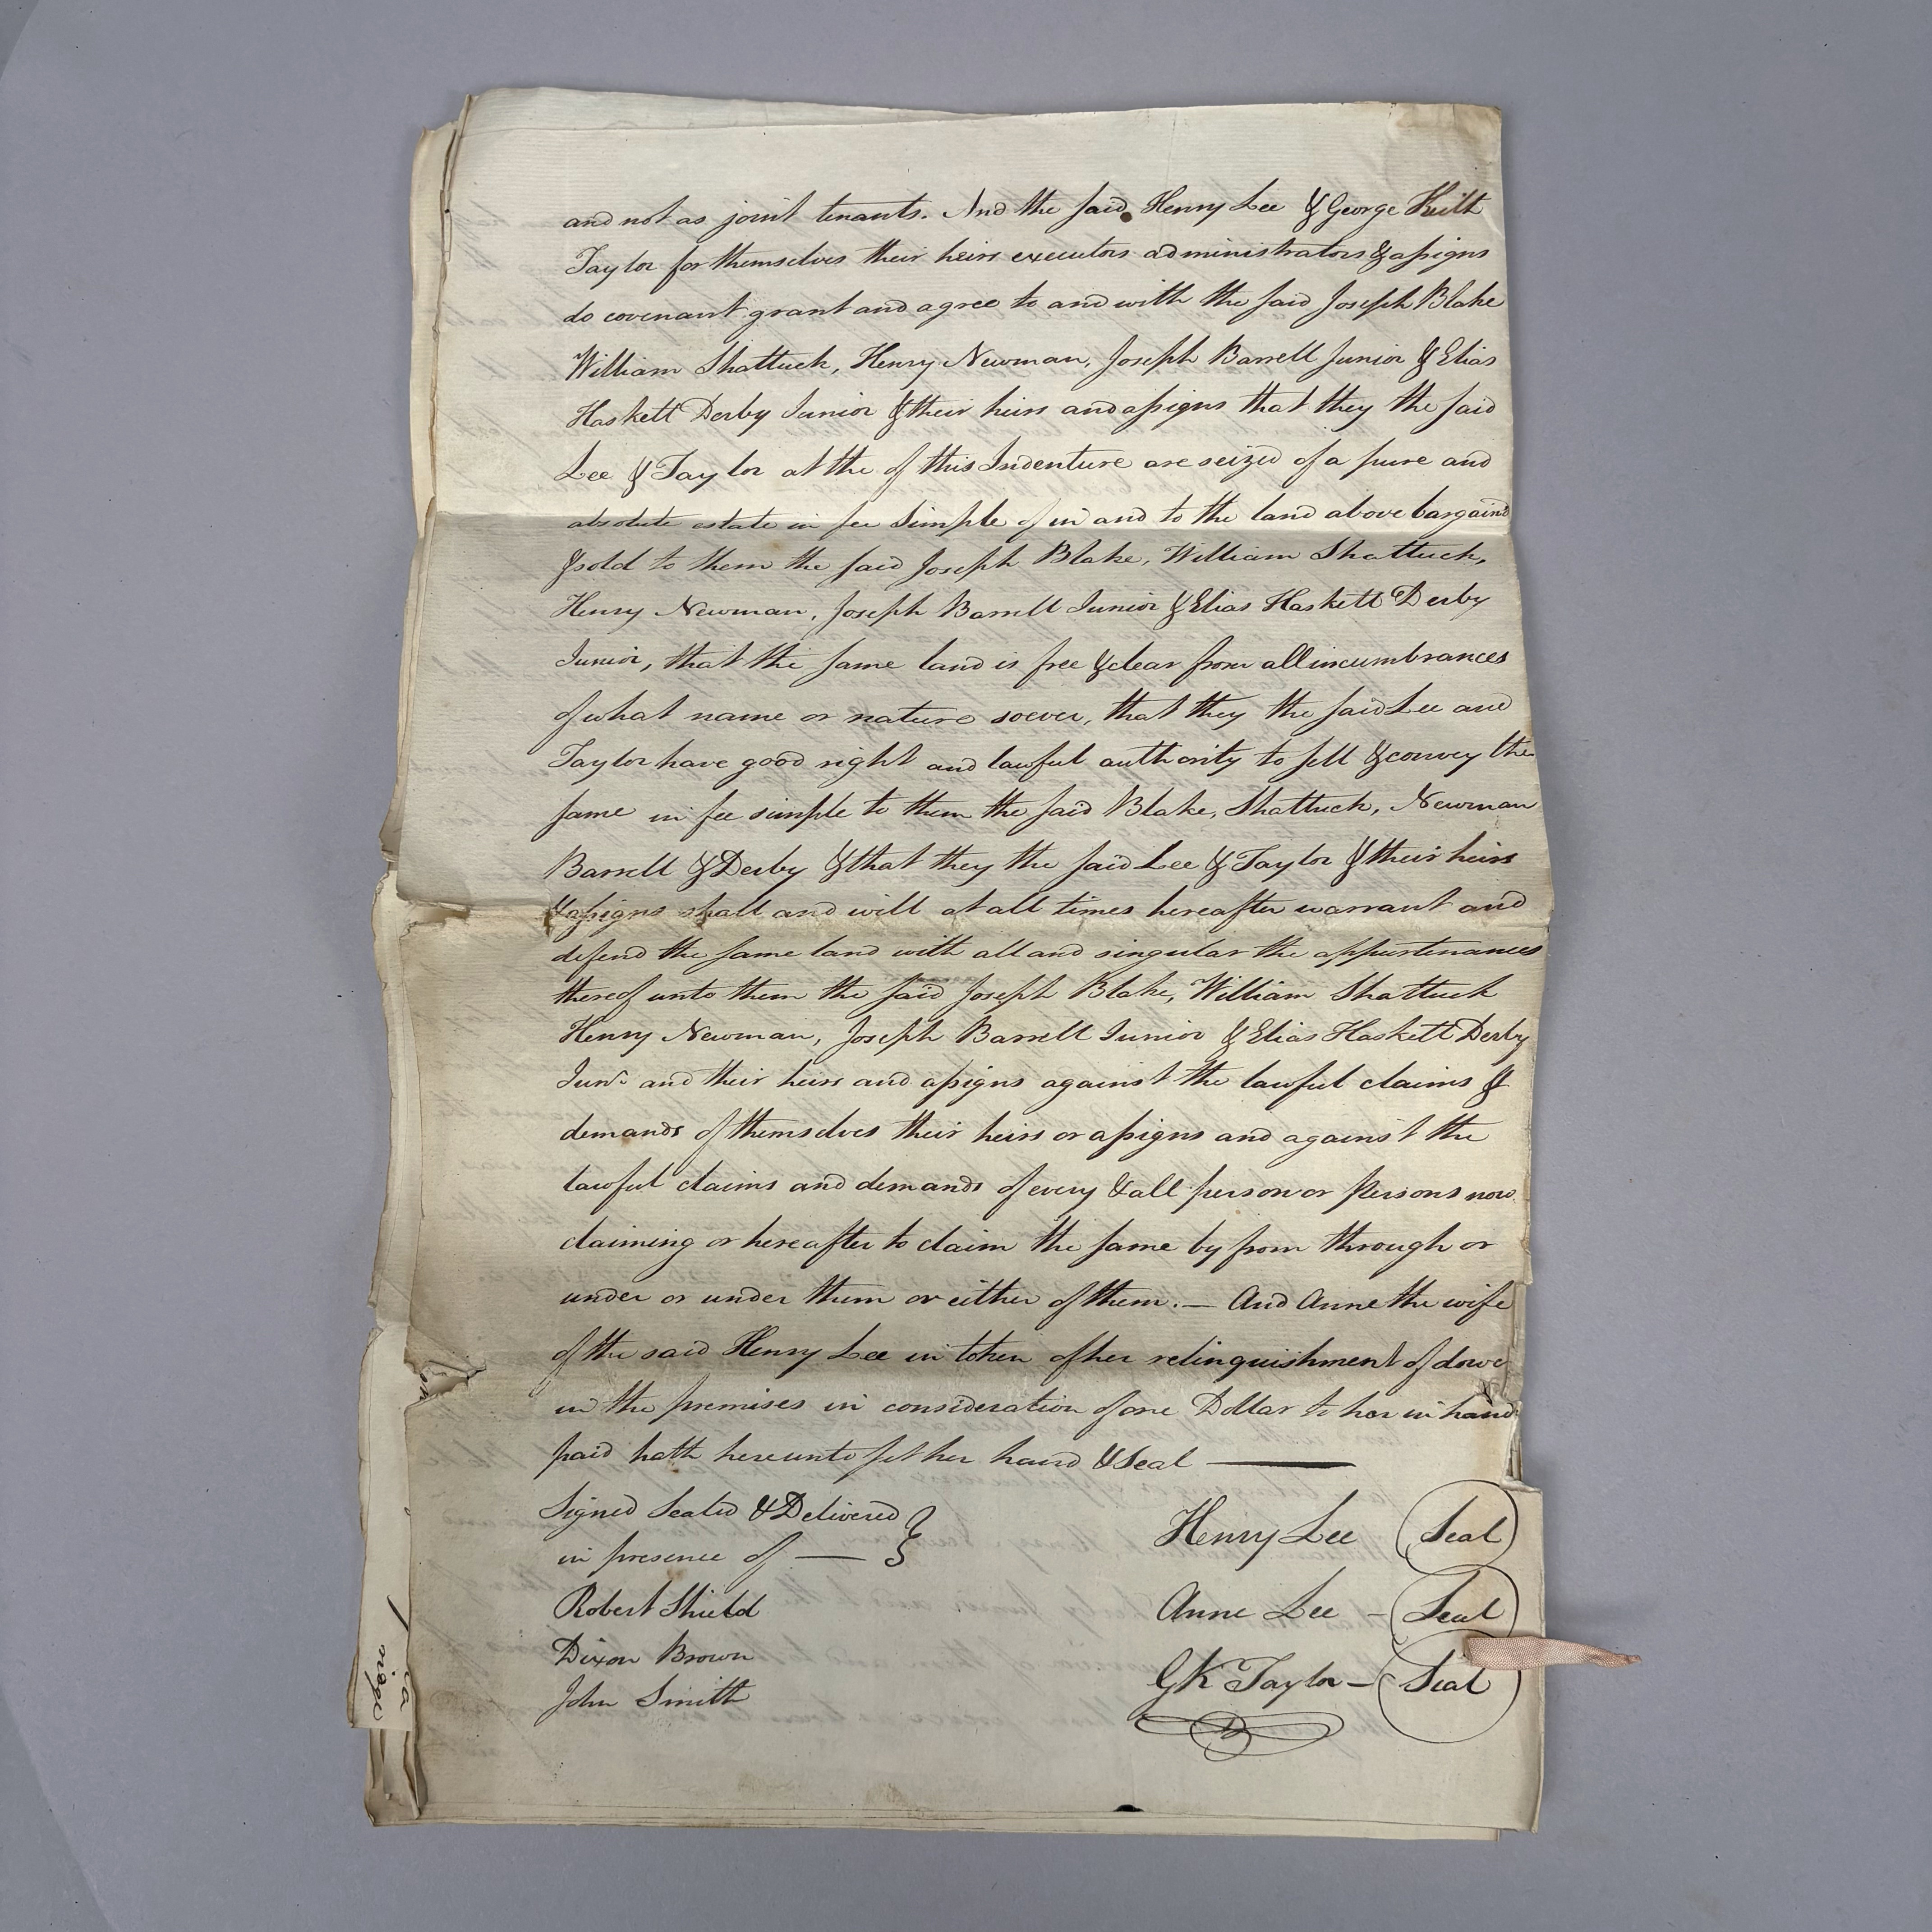 and not as joint tenants. And the said Henry Lee & George Keith
Taylor for themselves their heirs executors administrators & assigns
do covenant grant and agree to and with the said Joseph Blake
William Shattuck, Henry Newman, Joseph Barrell Junior & Elias
Haskett Derby Junior & their heirs and assigns that they the said
Lee & Taylor at the of this Indenture are seized of a pure and
absolute estate in fee Simple of in and to the land above bargaind
& sold to them the said Joseph Blake, William Shattuck,
Henry Newman, Joseph Barrell Junior & Elias Haskett Derby
Junior, that the same land is free & clear from all incumbrances
of what name or nature soever, that they the said Lee and
Taylor have good right and lawful authority to sell & convey the
same in fee simple to them the said Blake, Shattuck, Newman
Barrell & Derby & that they the said Lee & Taylor & their heirs
& assigns shall and will at all times hereafter warrant and
defend the same land with all and singular the appurtenances
thereof unto them the said Joseph Blake, William Shattuck
Henry Newman, Joseph Barrell Junior & Elias Haskett Derby
Junr and their heirs and assigns against the lawful claims &
demands of themselves their heirs or assigns and against the
lawful claims and demands of every & all person or Persons now
claiming or hereafter to claim the same by from through or
under or under them or either of them. — And Anne the wife
of the said Henry Lee in token of her relinquishment of dowe
in the premises in consideration of one Dollar to her in hand
paid hath hereunto set her hand & Seal —
Signed Sealed & Delivered }
in presence of —
Robert Shield
Dixon Brown
John Smith
Henry Lee Seal
Anne Lee – Seal
GK Taylor – Seal